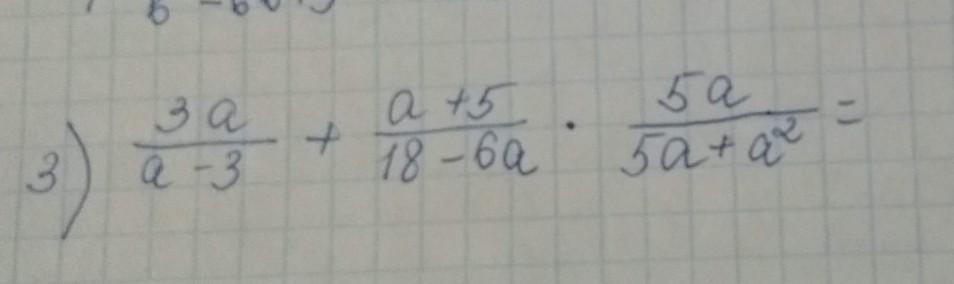 3) 3a/(a - 3) + (a + 5)/(18 - 6a) · 5a/(5a + a²) =